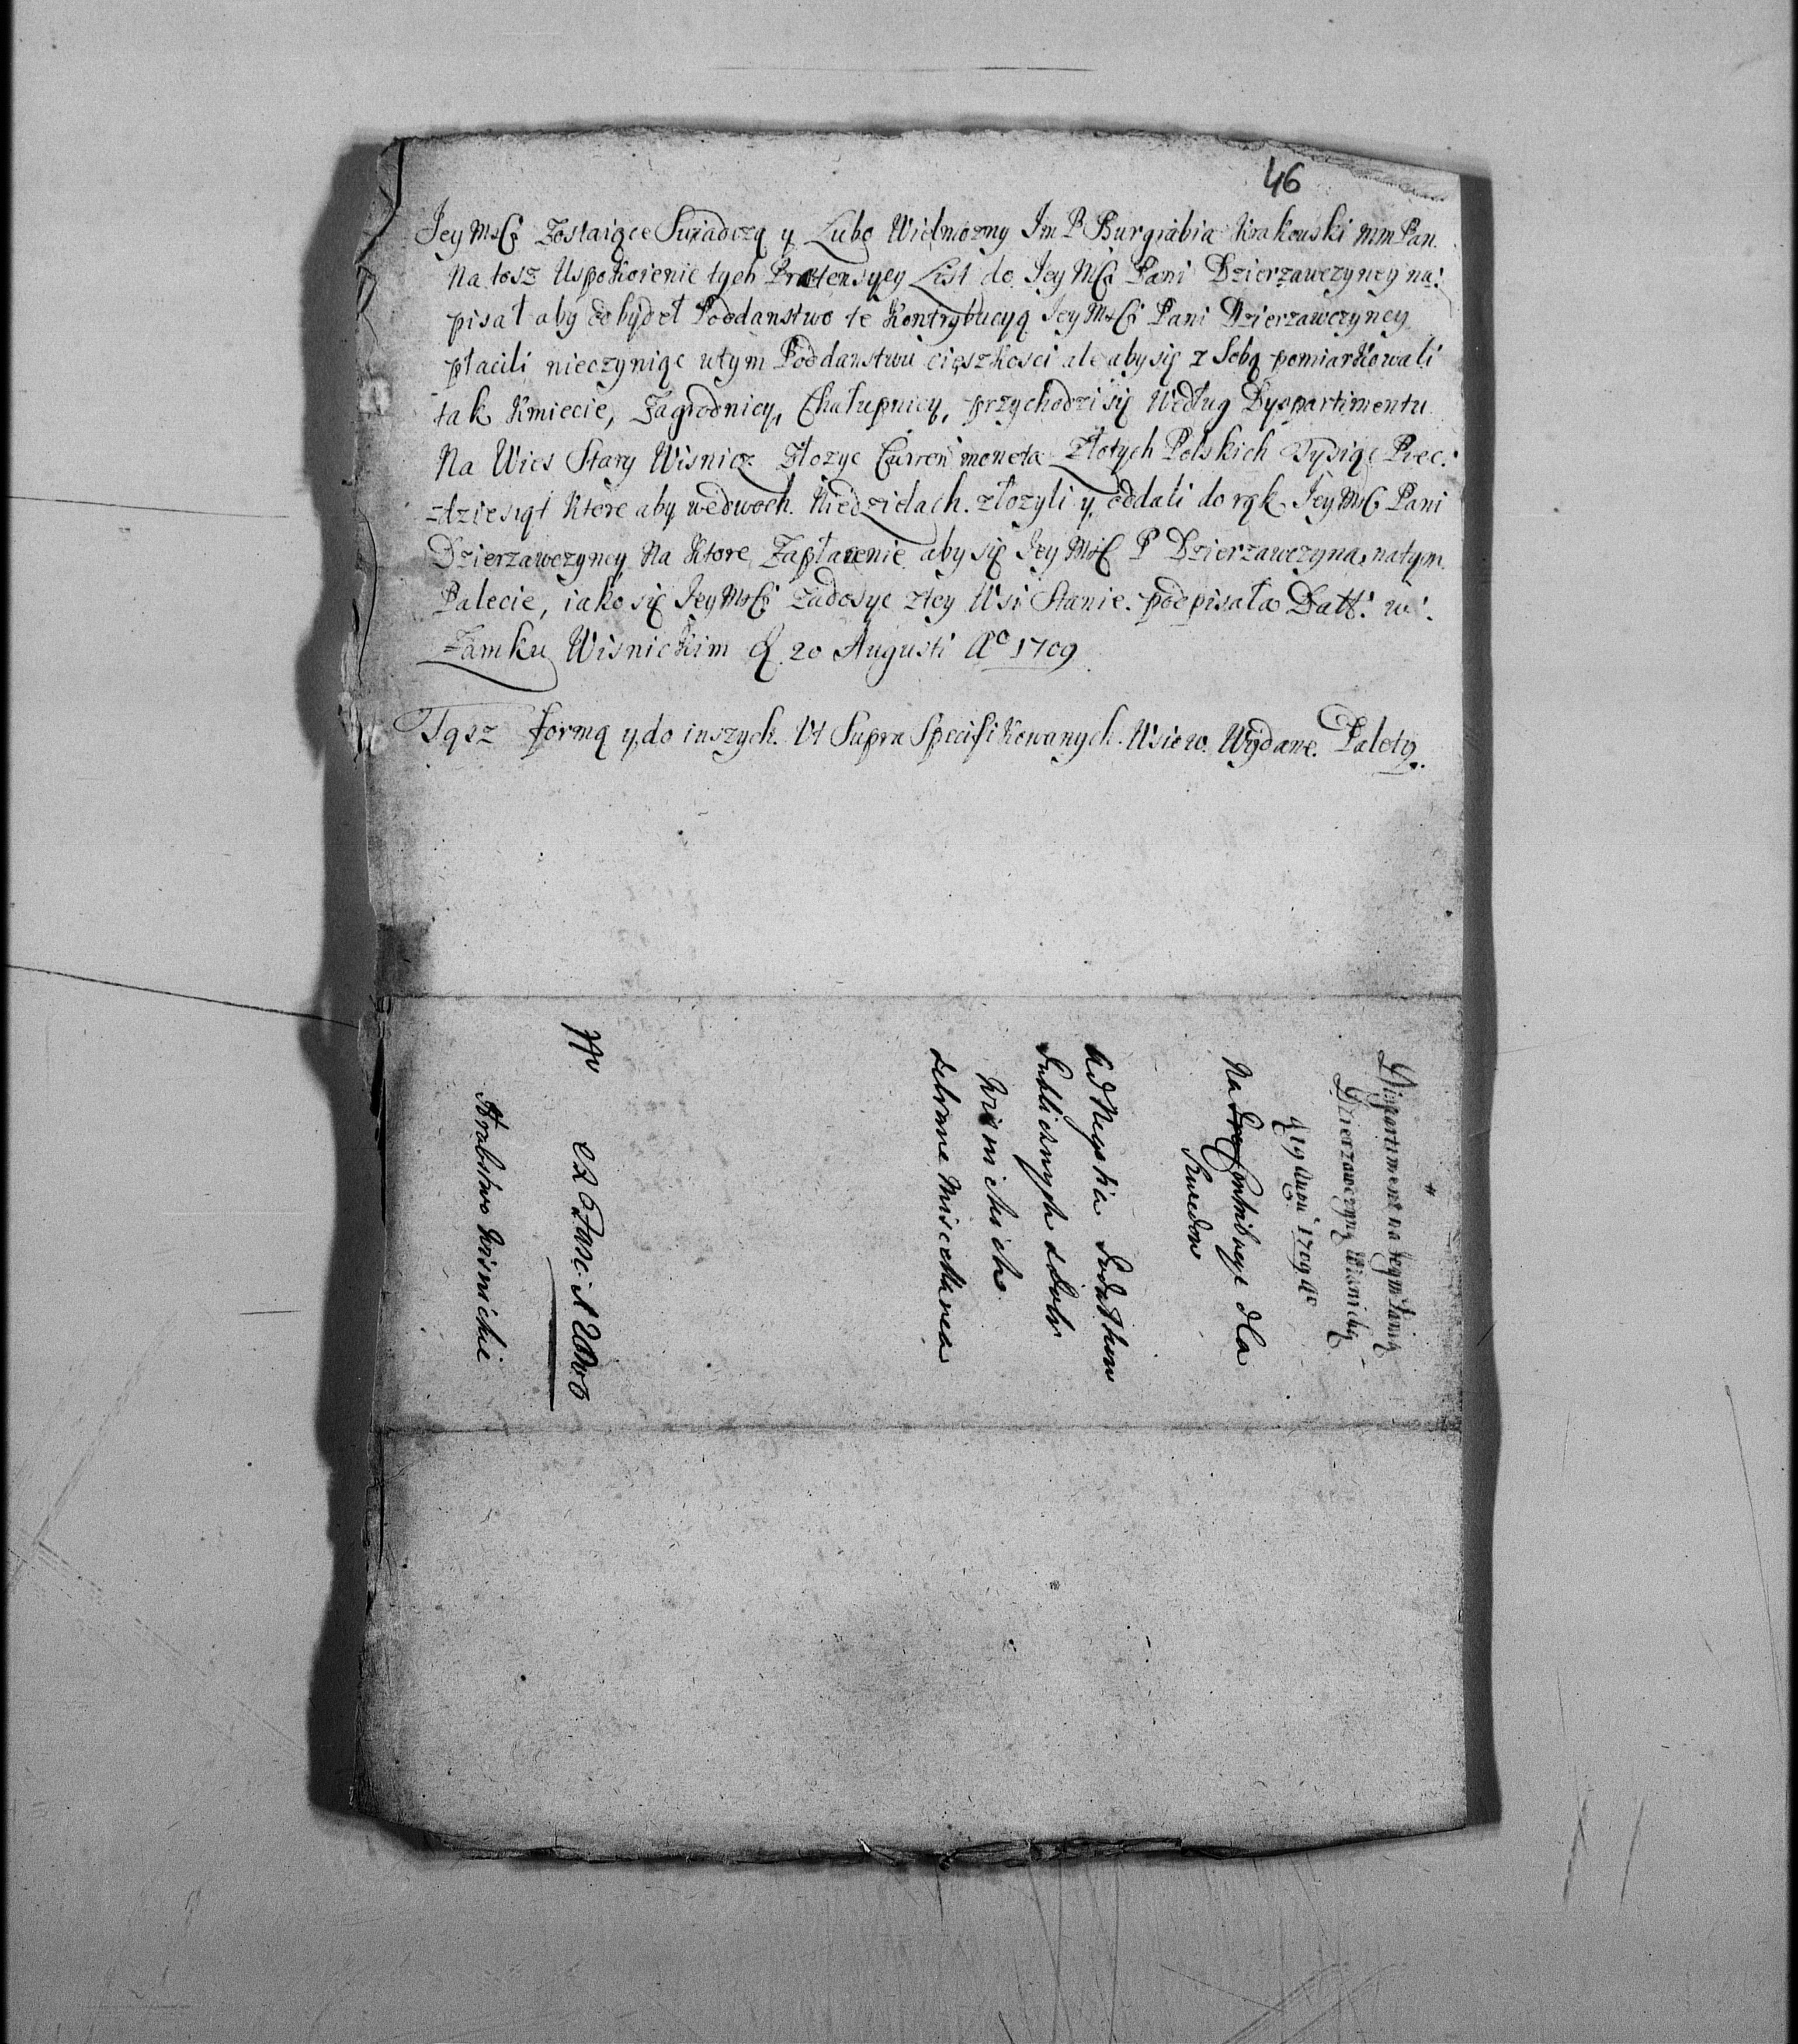 46
Jey Mści Zostaiące Swiadczą y Lubo Wielmozny Im P Burgrabia Krakowski mm Pan
Na tosz Uspokoienie tych Praetensyey List do Jey Mści Pani Dzierzawczyney na:
pisał aby dobydeł Poddanstwo te Kontrybucyą Jey Mści Pani Dzierzawczyney
płacili nieczyniąc wtym Poddanstwu cięszkosci ale aby się z Sobą pomiarkowali
tak Kmiecie, Zagrodnicy, Chałupnicy, przychodzi się Według Dyspartimentu
Na Wies Stary Wisnicz Złozyc Curren moneta Złotych Polskich Tysiąc Piec:
dziesiąt Ktore aby wedwoch Niedzielach złozyli y oddali do rąk Jey Mści Pani
Dzierzawczyney Na Ktore Zapłacenie aby się Jey Mści P Dzierzawczyna natym
Palecie, iako się Jey Mści Zadosyc ztey Wsi Stanie podpisała Datt: w:
Zamku Wisnickim d. 20 Augusti Ao 1709
Tąsz formą y do inszych Ut Supra Specifikowanych Wsiow Wydane Palety.
Dispartiment na Jeym Panią
Dzierzawczynę Wisnicką
d 19 Augu 1709 Ao
Na Contribucyę dla
Szwedow
Ad Regestra Podatkow
Publicznych z Dobr
Wisnickich
zebrane Miscellanea
Fasc.
Hrabstwo Wisnickie